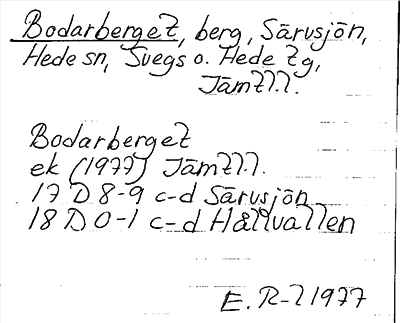 Bodarberget, berg, Särvsjön,
Hede sn, Svegs o. Hede tg,
Jämtl.l.
Bodarberget
ek (1977) Jämtl.l.
17 D 8-9 c-d Särvsjön
18 D 0-1 c-d Hållvallen
E. R-l 1977